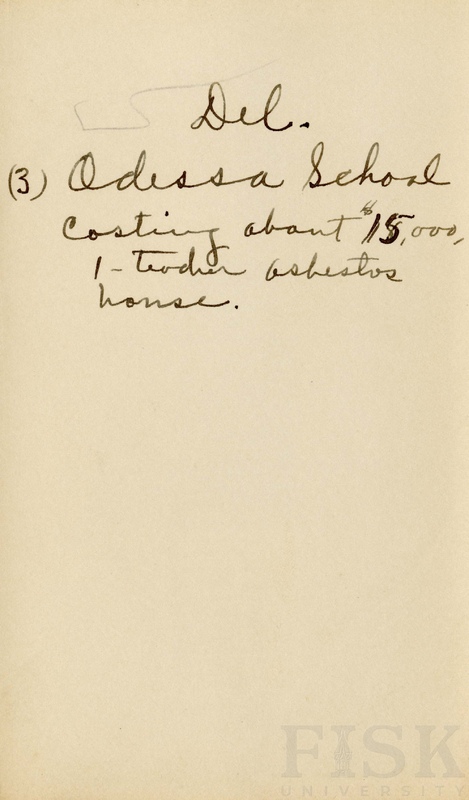 Del.
(3) Odessa School
Costing about $15,000,
1-teacher asbestos
house.
FISK
UNIVERSITY